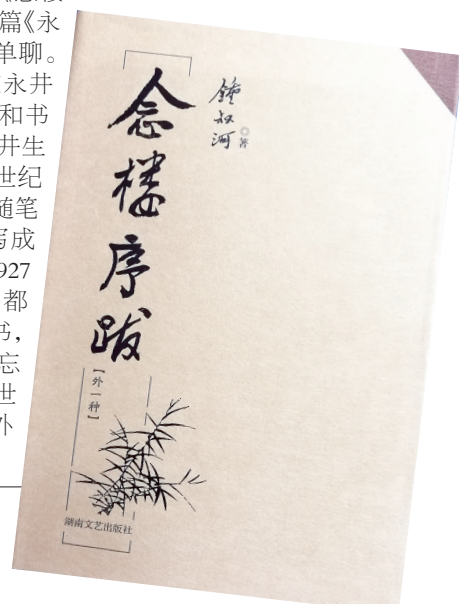 篇《永
单聊。
永井
和书
井生
世纪
随笔
写成
927
都
书，
忘
世
外
念楼序跋
鍾叔河
◎著
【外一种】
湖南文艺出版社